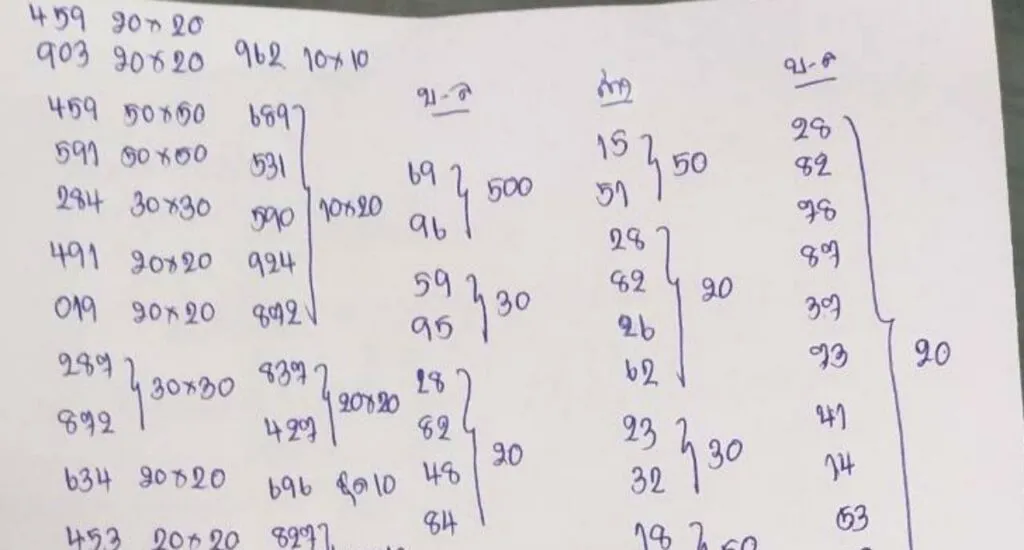 459 20×20
903 20×20 962 10×10
459 50×50
591 50×50
284 30×30
491 20×20
019 20×20
287
872 } 30×30
634 20×20
453 20×20
689
531
590
924
872 } 10×20
837
427 } 20×20
696 ชุด 10
827
บ-ล
69
96 } 500
59
95 } 30
28
82
48
84 } 20
ล่าง
15
51 } 50
28
82
26
62 } 20
23
32 } 30
18 } 50
บ-ล
28
82
78
87
37
73
41
14
53
} 20